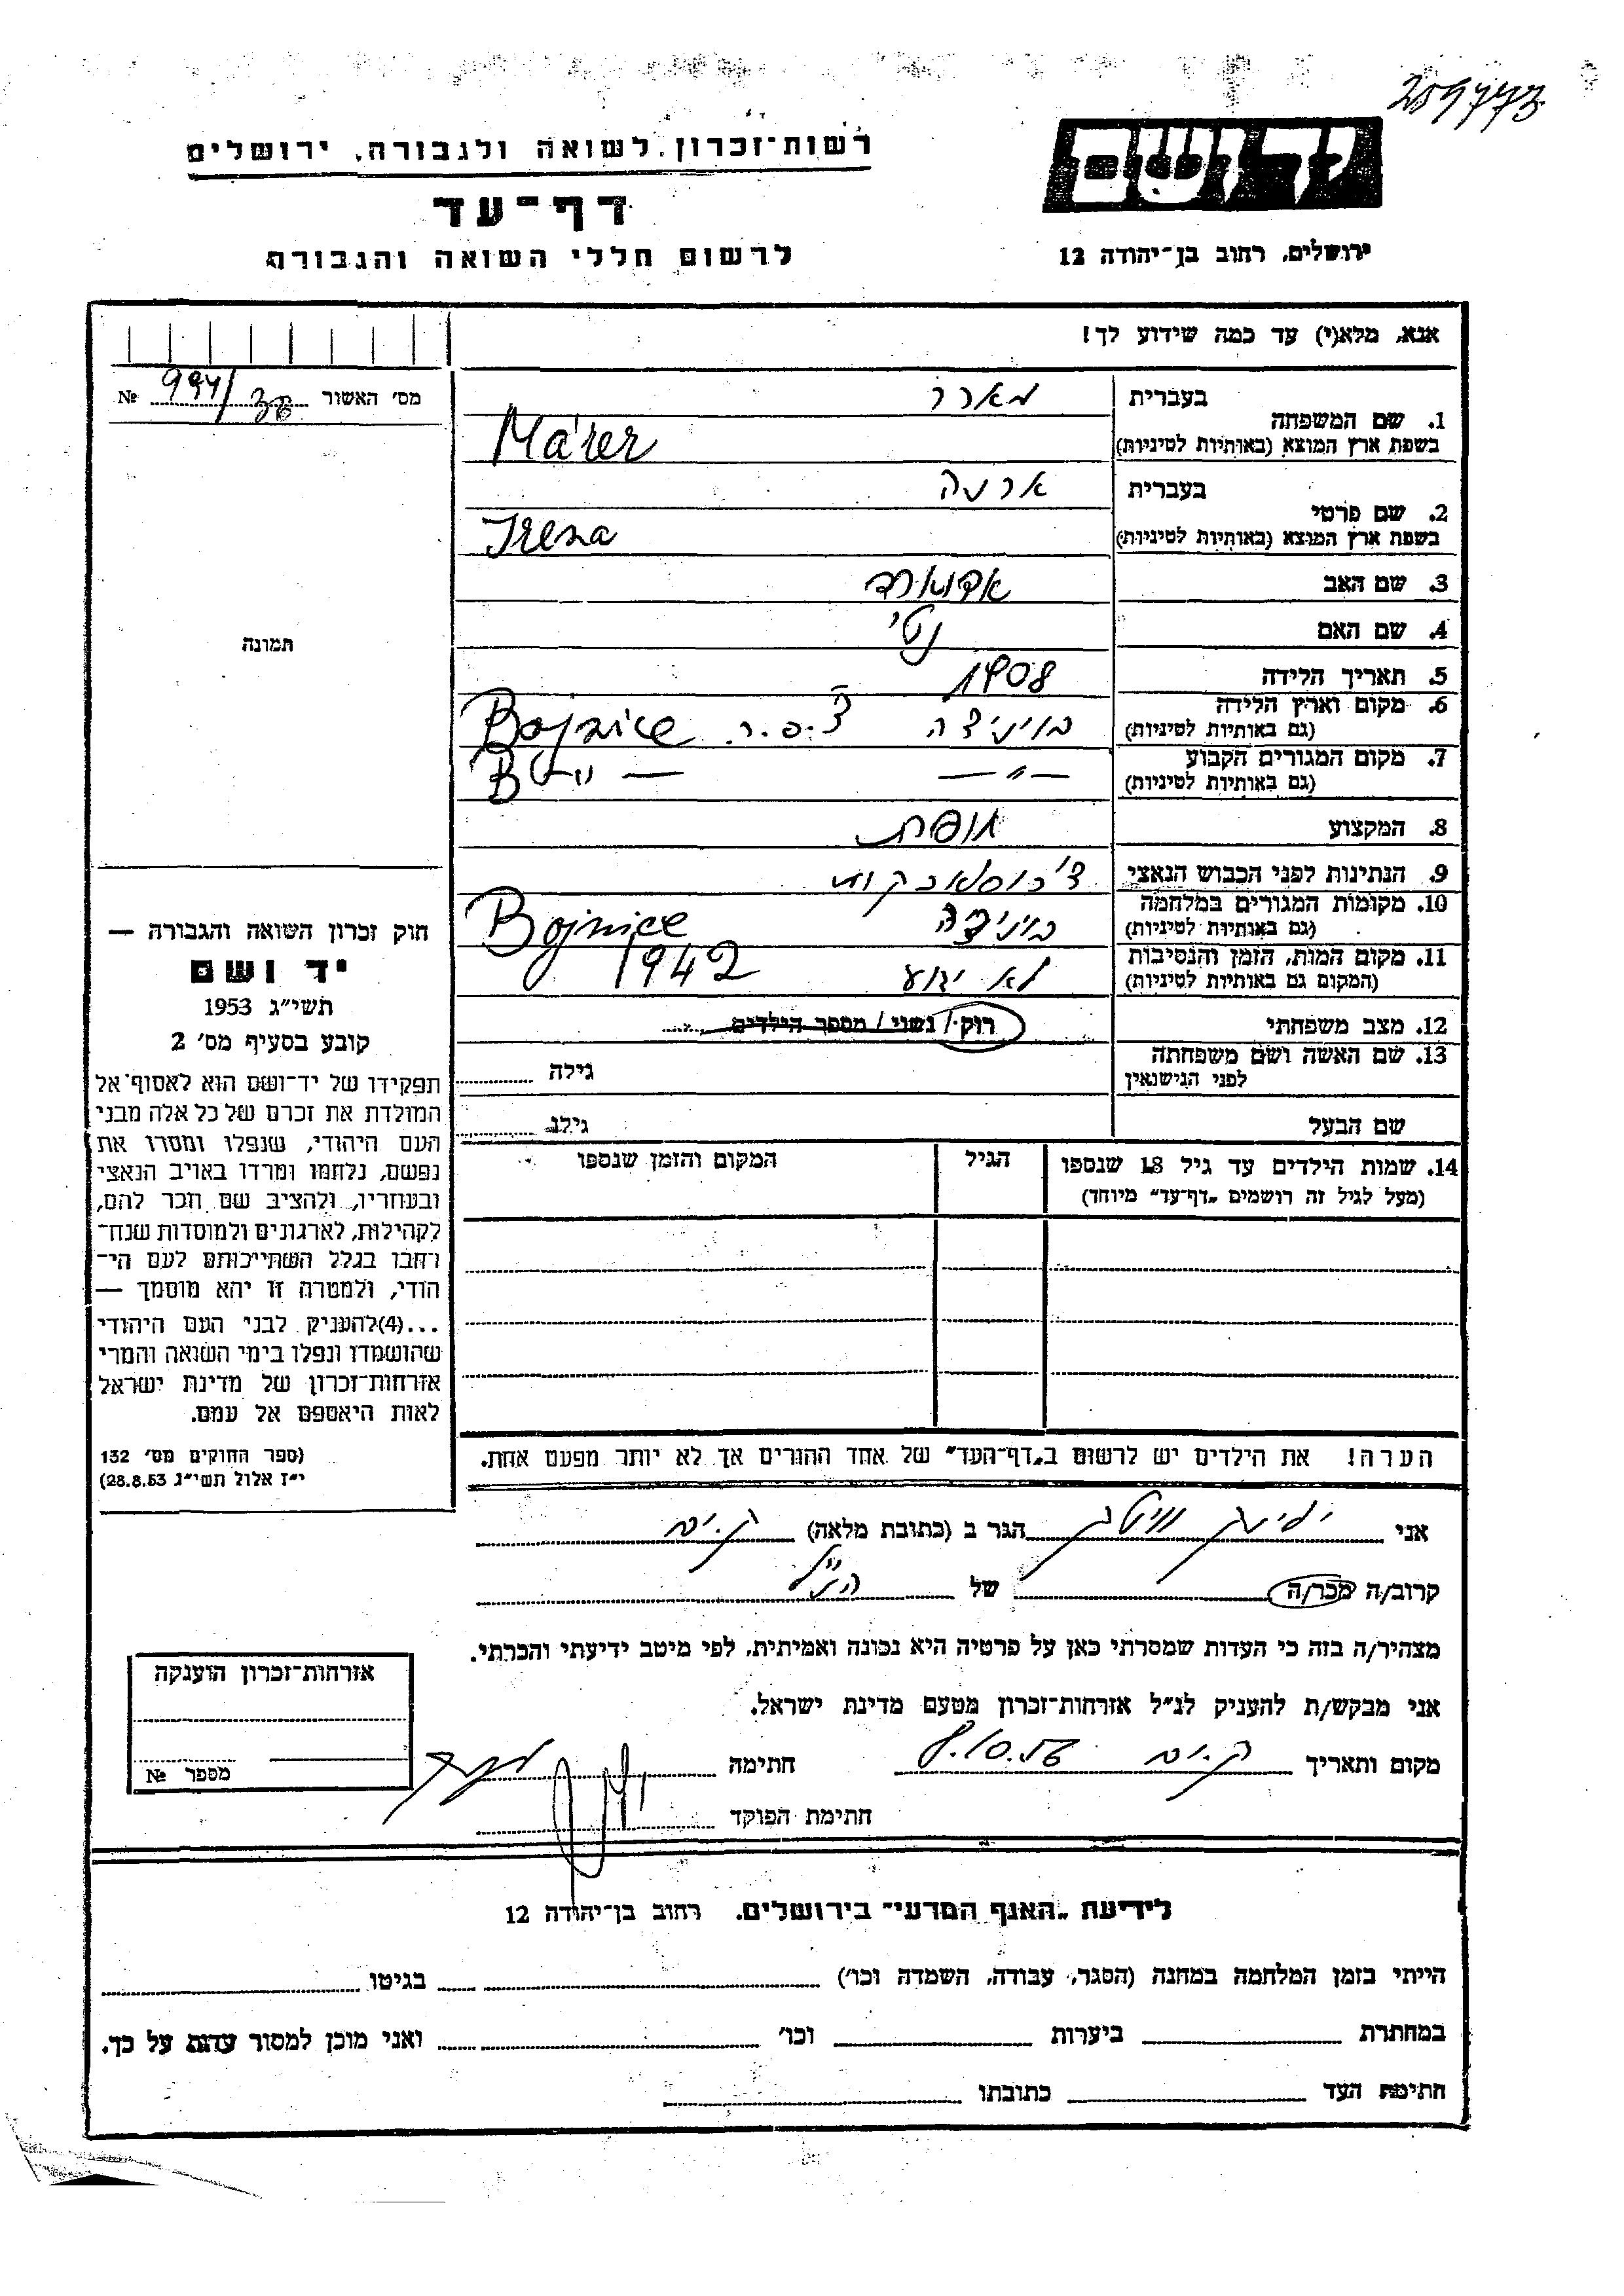 209773
רשות־זכרון לשואה ולגבורה, ירושלים
יד ושם
דף־עד
לרשום חללי השואה והגבורה
ירושלים, רחוב בן־יהודה 12
אנא, מלא(י) עד כמה שידוע לך!
מס׳ האשור 994/38 №
1. שם המשפחה
בעברית מארר
בשפת ארץ המוצא (באותיות לטיניות) Márer
2. שם פרטי
בעברית ארנה
בשפת ארץ המוצא (באותיות לטיניות) Irena
3. שם האב אדוארד
4. שם האם נטי
תמונה
5. תאריך הלידה 1908
6. מקום וארץ הלידה בויניצה צ׳.ס.ר. Bojnice
(גם באותיות לטיניות)
7. מקום המגורים הקבוע — " — B — " —
(גם באותיות לטיניות)
8. המקצוע תופרת
9. הנתינות לפני הכבוש הנאצי צ׳כוסלובקית
10. מקומות המגורים במלחמה בויניצה Bojnice
(גם באותיות לטיניות)
11. מקום המות, הזמן והנסיבות לא ידוע 1942
(המקום גם באותיות לטיניות)
12. מצב משפחתי רוק / נשוי / מספר הילדים
13. שם האשה ושם משפחתה גילה
לפני הנישואין
שם הבעל גילו
14. שמות הילדים עד גיל 18 שנספו הגיל המקום והזמן שנספו
(מעל לגיל זה רושמים „דף־עד” מיוחד)
חוק זכרון השואה והגבורה —
יד ושם
תשי״ג 1953
קובע בסעיף מס׳ 2
תפקידו של יד־ושם הוא לאסוף אל
המולדת את זכרם של כל אלה מבני
העם היהודי, שנפלו ומסרו את
נפשם, נלחמו ומרדו באויב הנאצי
ובעוזריו, ולהציב שם וזכר להם,
לקהילות, לארגונים ולמוסדות שנח־
רבו בגלל השתייכותם לעם הי־
הודי, ולמטרה זו יהא מוסמך —
...(4) להעניק לבני העם היהודי
שהושמדו ונפלו בימי השואה והמרי
אזרחות־זכרון של מדינת ישראל
לאות היאספם אל עמם.
(ספר החוקים מס׳ 132
י״ז אלול תשי״ג 28.8.53)
הערה! את הילדים יש לרשום ב„דף־העד” של אחד ההורים אך לא יותר מפעם אחת.
אני הגר ב (כתובת מלאה) ק. ים
קרוב/ה מכר/ה של הנ״ל
מצהיר/ה בזה כי העדות שמסרתי כאן על פרטיה היא נכונה ואמיתית, לפי מיטב ידיעתי והכרתי.
אני מבקש/ת להעניק לנ״ל אזרחות־זכרון מטעם מדינת ישראל.
מקום ותאריך ק. ים 8.10.56 חתימה
חתימת הפוקד
אזרחות־זכרון הוענקה
מספר №
לידיעת „האגף המדעי” בירושלים. רחוב בן־יהודה 12
הייתי בזמן המלחמה במחנה (הסגר, עבודה, השמדה וכו׳) בגיטו
במחתרת ביערות וכו׳ ואני מוכן למסור עדות על כך.
חתימת העד כתובתו